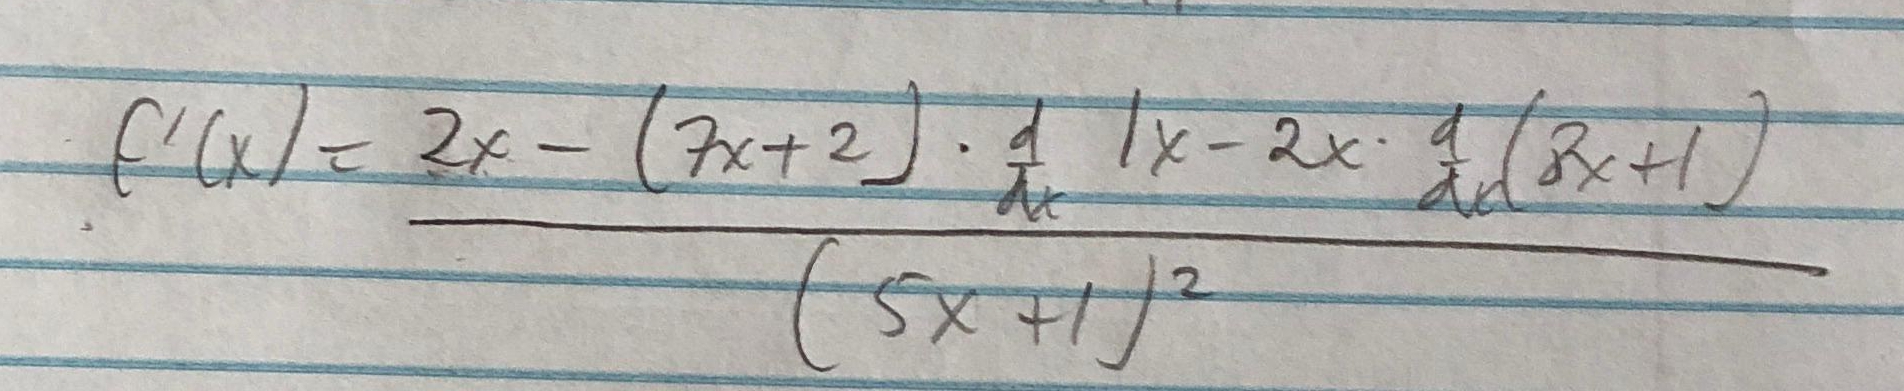 f'(x) = \frac{2x - (7x+2) \cdot \frac{d}{dx} 1x - 2x \cdot \frac{d}{dx} (8x+1)}{(5x+1)^2}